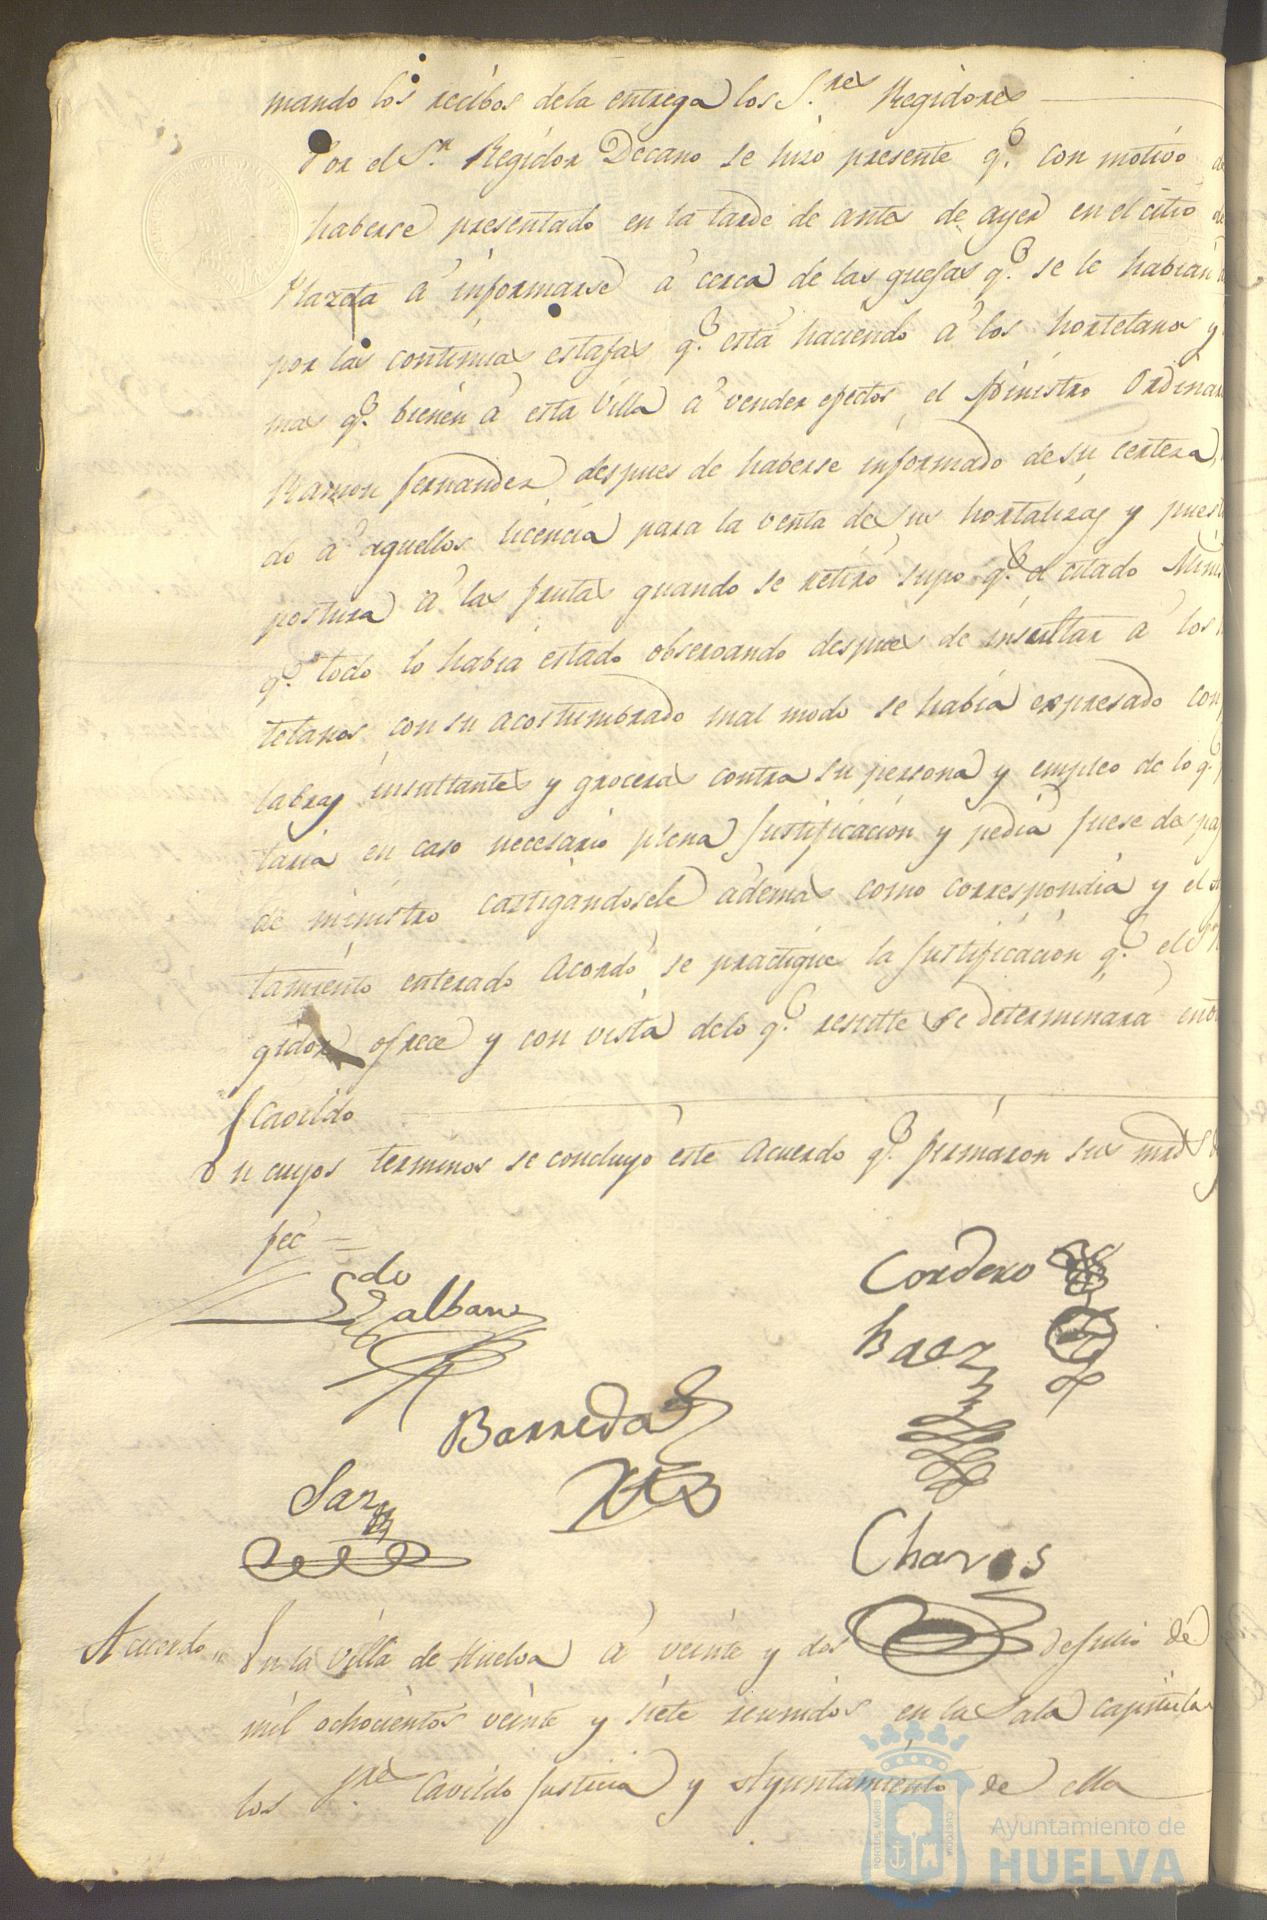 mando los recibos dela entrega los S.res Regidores
Por el S.r Regidor Decano se hizo presente q.e con motivo de
haberse presentado en la tarde de antes de ayer en el citio de
Plazeta á informarse á cerca de las quejas q.e se le habian
por las continuas estafas q.e está haciendo á los hortelanos y
mas q.e bienen á esta Villa á vender efectos el Ministro Ordinar
Ramon Fernandez, despues de haberse informado de su certeza,
do á aquellos licencia para la venta de sus hortalizas y puest
postura á las frutas quando se retiró supo q.e el citado Mini
q.e todo lo habia estado observando despues de insultar á los
telanos con su acostumbrado mal modo se habia expresado con
labras insultantes y groceras contra su persona y empleo de lo q.e
taria en caso necesario plena justificacion y pedia fuese des
de ministro castigandosele ademas como correspondia y el
tamiento enterado Acordó se practique la justificacion q.e el S.r
gidor ofrece y con vista delo q.e resulte se determinará
Cavildo
En cuyos terminos se concluyó este Acuerdo q.e firmaron sus mrds
feé =
Ldo Galban
Cordero
Baez
Barreda
Saz
Chaves
Acuerdo En la Villa de Huelva á veinte y dos de Julio de
mil ochocientos veinte y siete reunidos en la Sala capitular
los S.res Cavildo Justicia y Ayuntamiento de ella
Ayuntamiento de
HUELVA